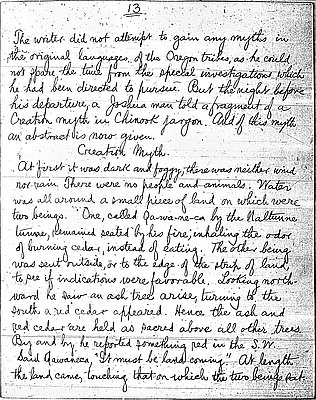 13
The writer did not attempt to gain any myths in
the original languages, of the Oregon tribes, as he could
not spare the time from the special investigations which
he had been directed to pursue. But the night before
his departure, a Joshua man told a fragment of a
Creation myth in Chinook jargon. And of this myth
an abstract is now given.
Creation Myth.
At first it was dark and foggy, there was neither wind
nor rain. There were no people and animals. Water
was all around a small piece of land on which were
two beings. One, called Qa-wa-ne-ca by the Naltunne
tunne, remained seated by his fire, inhaling the odor
of burning cedar, instead of eating. The other being
was sent outside, or to the edge of the strip of land,
to see if indications were favorable. Looking north-
ward he saw an ash tree arise, turning to the
south a red cedar appeared. Hence the ash and
red cedar are held as sacred above all other trees.
By and by he reported something red in the S.W.
Said Qawaneca, "It must be land coming." At length
the land came, touching that on which the two beings sat.